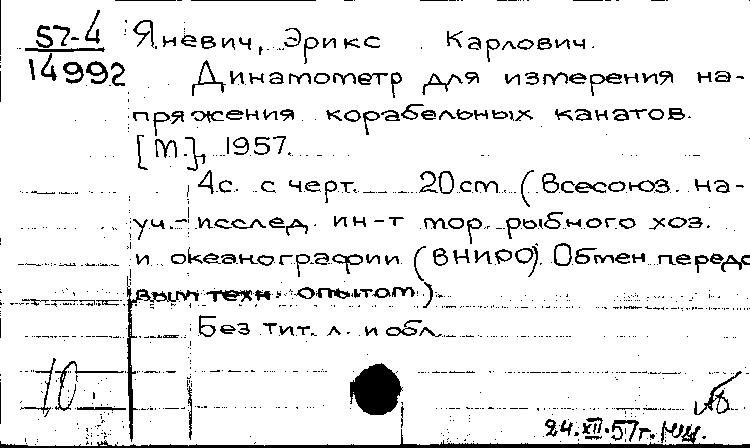 57-4
14992
Яневич, Эрикс Карлович.
Динамометр для измерения на-
пряжения корабельных канатов.
[М.], 1957.
4с. с черт. 20см. (Всесоюз. на-
уч.-исслед. ин-т мор. рыбного хоз.
и океанографии (ВНИРО). Обмен передо
вым техн. опытом).
Без тит. л. и обл.
10
24.XII.57г.